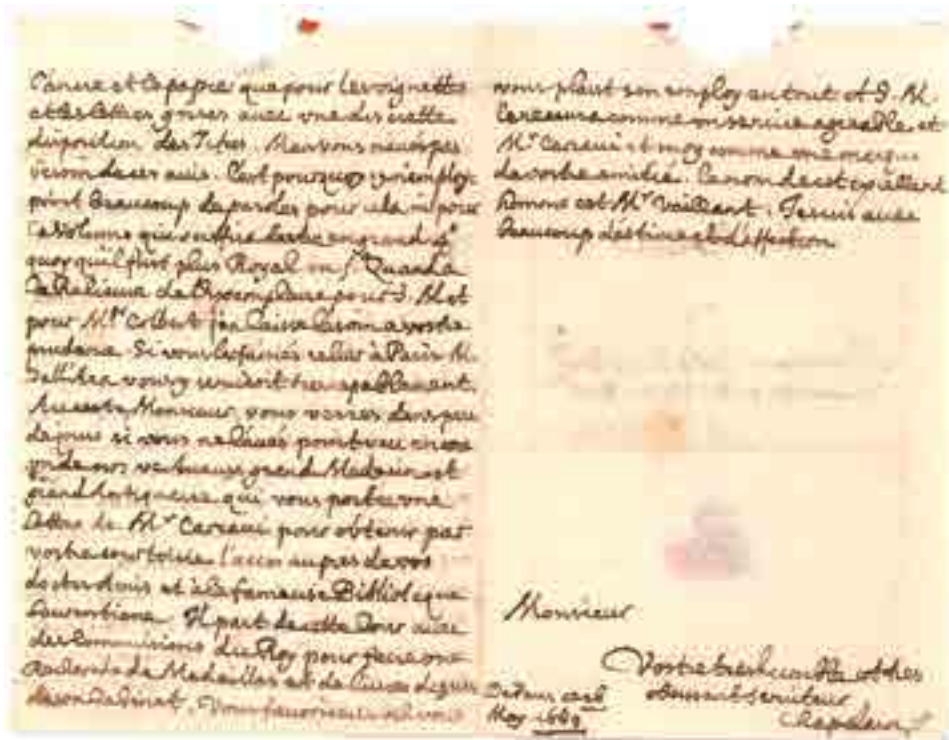 l'ancre et le papier que pour les vignettes
et les lettres grises avec une discrette
disposition des Titres. Mais vous
de ces avis. C'est pourquoy je n'employe
point beaucoup de paroles pour cela ni pour
le volume en grand 4°
quoy qu'il fust plus Royal in f° Quand a
la Relieure de l'Exemplaire pour S. M. et
pour Mr Colbert j'en laisse le soin a vostre
prudence. Si vous les faisiés relier à Paris M.
vous y tres agreablement.
Au reste, Monsieur, vous verrés dans peu
de jours si vous ne l'avés point veu encore
un de nos vertueux grand Medecin et
grand Antiquaire qui vous porte une
Lettre de Mr Carcavi pour obtenir par
vostre courtoisie l'acces aupres de vos
doctes amis et à la fameuse Biblioteque
Laurentiane. Il part de cette Cour avec
des Commissions du Roy pour faire une
de Medailles et de livres dignes
de son Cabinet. Vous favoriserés s'il vous
vous plaist son employ en tout et S. M.
le recevra comme un service agreable et
Mr Carcavi et moy comme une marque
de vostre amitié. Le nom de cet excellent
homme est Mr Vaillant. Je suis avec
beaucoup d'estime et d'affection
Monsieur
Vostre treshumble et tres
obeissant serviteur
Chapelain
De Paris ce
May 1669